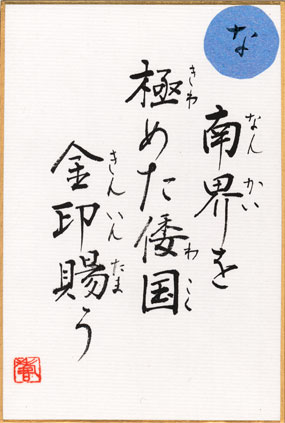 な
南界を
極めた倭国
金印賜う
なんかい
きわ
わこく
きんいん
たま